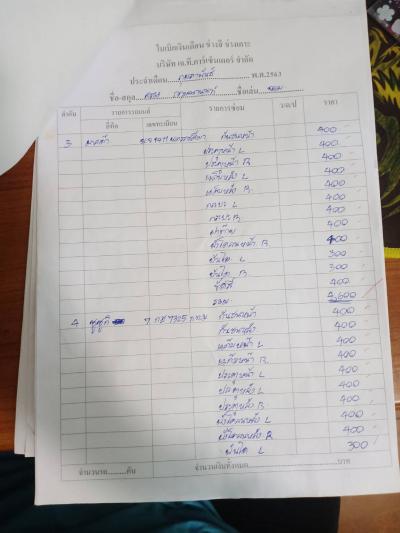 ใบเบิกเงินเดือน ช่างสี ช่างเคาะ
บริษัท เจ.ที.คาร์เซ็นเตอร์ จำกัด
ประจำเดือน กุมภาพันธ์ พ.ศ.2563
ชื่อ-สกุล ชื่อเล่น
ลำดับ รายการรถยนต์ รายการซ่อม ว/ด/ป ราคา
ยี่ห้อ เลขทะเบียน
3 มาสด้า กันชนหน้า 400
ประตูหน้า L 400
ประตูหน้า R 400
แก้มหลัง L 400
แก้มหลัง R 400
กระบะ L 400
กระบะ R 400
ฝาท้าย 400
R 400
บันได L 300
บันได R 300
400
รวม 4,600
4 ซูซูกิ 7 กฮ 7325 กทม กันชนหน้า 400
กันชนหลัง 400
แก้มหน้า L 400
แก้มหน้า R 400
ประตูหน้า L 400
ประตูหลัง L 400
ประตูหลัง R 400
L 400
R 400
บันได L 300
จำนวนรถ.........คัน จำนวนเงินทั้งหมด..............................บาท